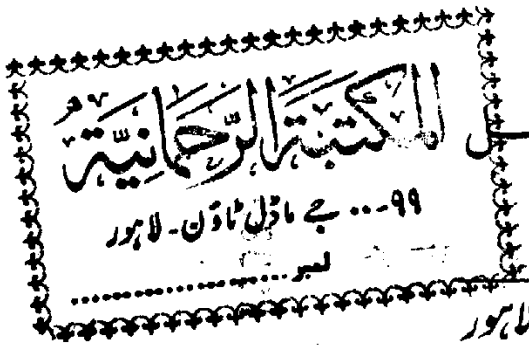 المكتبة الرحمانية
۹۹... جے ماڈل ٹاؤن۔ لاہور
نمبر....................
لاہور